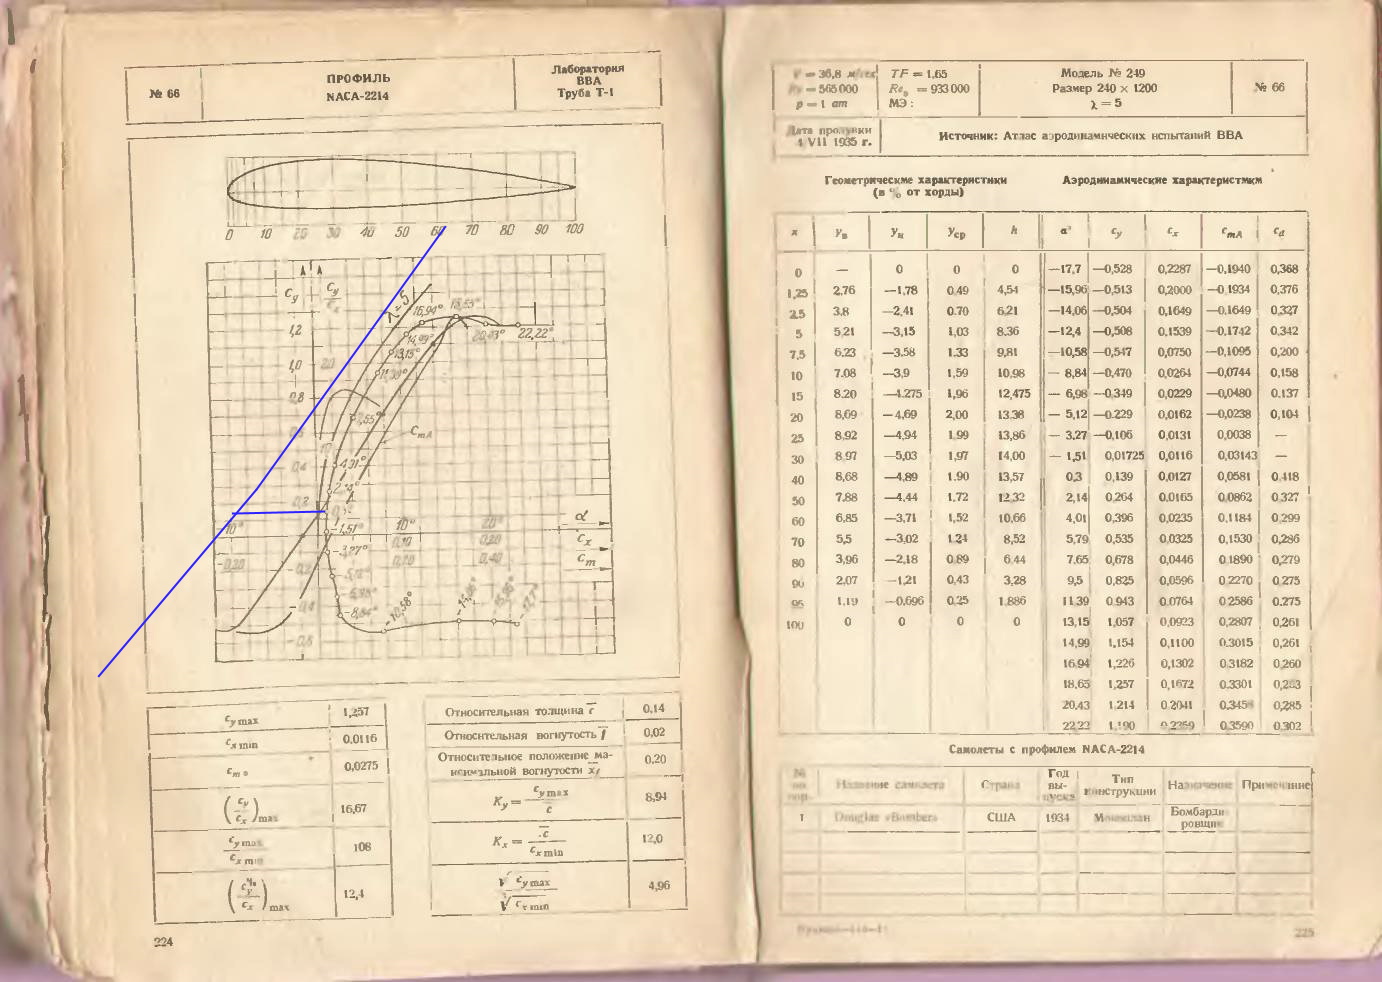 № 66
ПРОФИЛЬ
NACA-2214
Лаборатория
ВВА
Труба Т-1
0 10 20 30 40 50 60 70 80 90 100
Cy
Cy
Cx
λ=5
1,2
1,0
0,8
0,4
0,2
20
10
16,94°
18,65°
14,99°
13,15°
20,43°
22,22°
4,31°
-1,51°
-3,27°
-8,84°
-10,58°
CmA
10°
20°
α
0,10
0,20
Cx
-0,20
0,20
0,40
Cm
-0,4
-0,6
cy max 1,257
cx min 0,0116
cm o 0,0275
(cy / cx) max 16,67
cy max / cx min 108
12,4
Относительная толщина c 0,14
Относительная вогнутость f 0,02
Относительное положение максимальной вогнутости xf 0,20
Ky = cy max / c 8,94
Kx = c / cx min 12,0
4,96
224
V = 36,8 м/сек
= 565 000
p = 1 ат
TF = 1,65
Reэ = 933 000
МЭ:
Модель № 249
Размер 240 × 1200
λ = 5
№ 66
Дата продувки
4 VII 1935 г.
Источник: Атлас аэродинамических испытаний ВВА
Геометрические характеристики
(в % от хорды)
Аэродинамические характеристики
x yв yн yср h α° cy cx cmA cd
0 — 0 0 0 —17,7 —0,528 0,2287 —0,1940 0,368
1,25 2,76 —1,78 0,49 4,54 —15,96 —0,513 0,2000 —0,1934 0,376
2,5 3,8 —2,41 0,70 6,21 —14,06 —0,504 0,1649 —0,1649 0,327
5 5,21 —3,15 1,03 8,36 —12,4 —0,508 0,1539 —0,1742 0,342
7,5 6,23 —3,58 1,33 9,81 —10,58 —0,547 0,0750 —0,1095 0,200
10 7,08 —3,9 1,59 10,98 — 8,84 —0,470 0,0264 —0,0744 0,158
15 8,20 —4,275 1,96 12,475 — 6,98 —0,349 0,0229 —0,0480 0,137
20 8,69 —4,69 2,00 13,38 — 5,12 —0,229 0,0162 —0,0238 0,104
25 8,92 —4,94 1,99 13,86 — 3,27 —0,106 0,0131 0,0038 —
30 8,97 —5,03 1,97 14,00 — 1,51 0,01725 0,0116 0,03143 —
40 8,68 —4,89 1,90 13,57 0,3 0,139 0,0127 0,0581 0,418
50 7,88 —4,44 1,72 12,32 2,14 0,264 0,0165 0,0862 0,327
60 6,85 —3,71 1,52 10,66 4,01 0,396 0,0235 0,1184 0,299
70 5,5 —3,02 1,24 8,52 5,79 0,535 0,0325 0,1530 0,286
80 3,96 —2,18 0,89 6,44 7,65 0,678 0,0446 0,1890 0,279
90 2,07 —1,21 0,43 3,28 9,5 0,825 0,0596 0,2270 0,275
95 1,19 —0,696 0,25 1,886 11,39 0,943 0,0764 0,2586 0,275
100 0 0 0 0 13,15 1,057 0,0923 0,2807 0,261
14,99 1,154 0,1100 0,3015 0,261
16,94 1,226 0,1302 0,3182 0,260
18,65 1,257 0,1672 0,3301 0,263
20,43 1,214 0,2041 0,285
22,22 1,190 0,2359 0,3590 0,302
Самолеты с профилем NACA-2214
№ по пор. Название самолета Страна Год выпуска Тип конструкции Назначение Примечание
1 Douglas «Bomber» США 1934 Моноплан Бомбардировщик
225